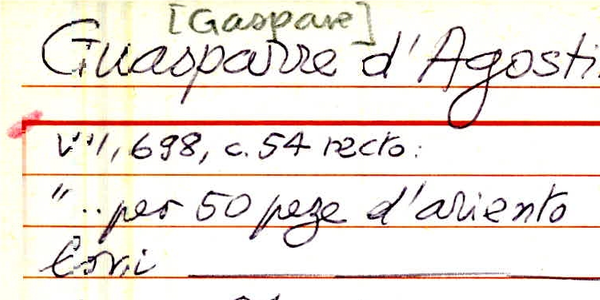 [Gaspare]
Guasparre d'Agosti
VII, 698, c. 54 recto:
"..per 50 peze d'ariento